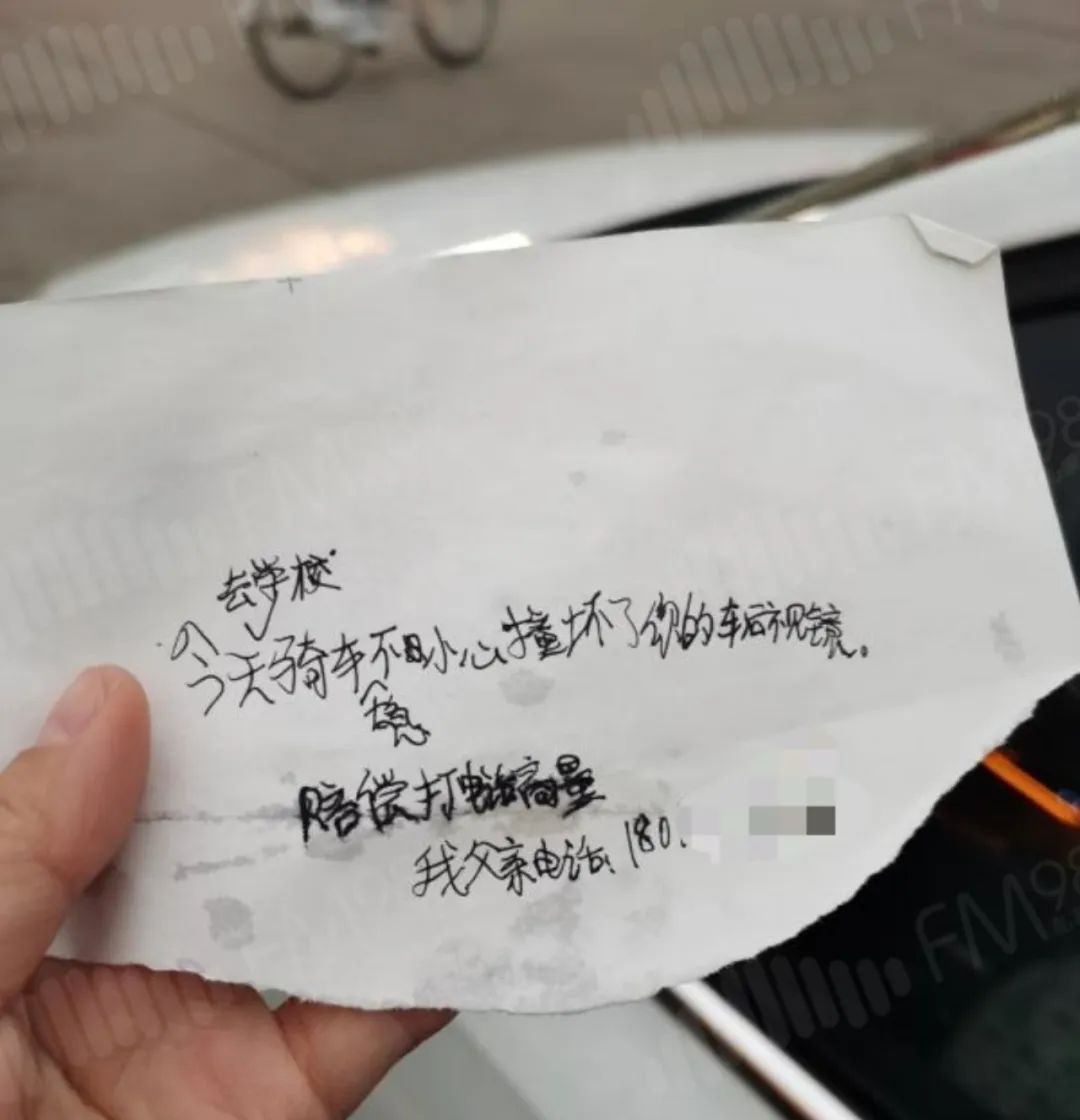 去学校
今天骑车不小心撞坏了您的车后视镜。
赔偿打电话商量
我父亲电话：180
FM98
FM
FM98